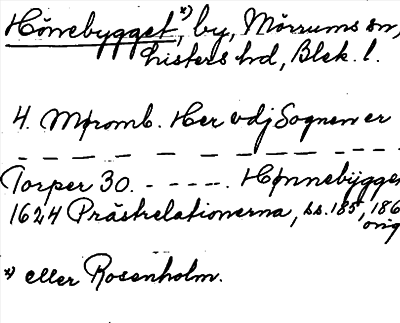 Hönnebygget *), by, Mörrums sn,
Listers hd, Blek. l.
4. Møromb. Her vdj Sognen er
— — — — — — — — — — —
Torper 30. - - - - - . Hønnebygge
1624 Prästrelationerna, ss. 185, 186
orig
*) eller Rosenholm.